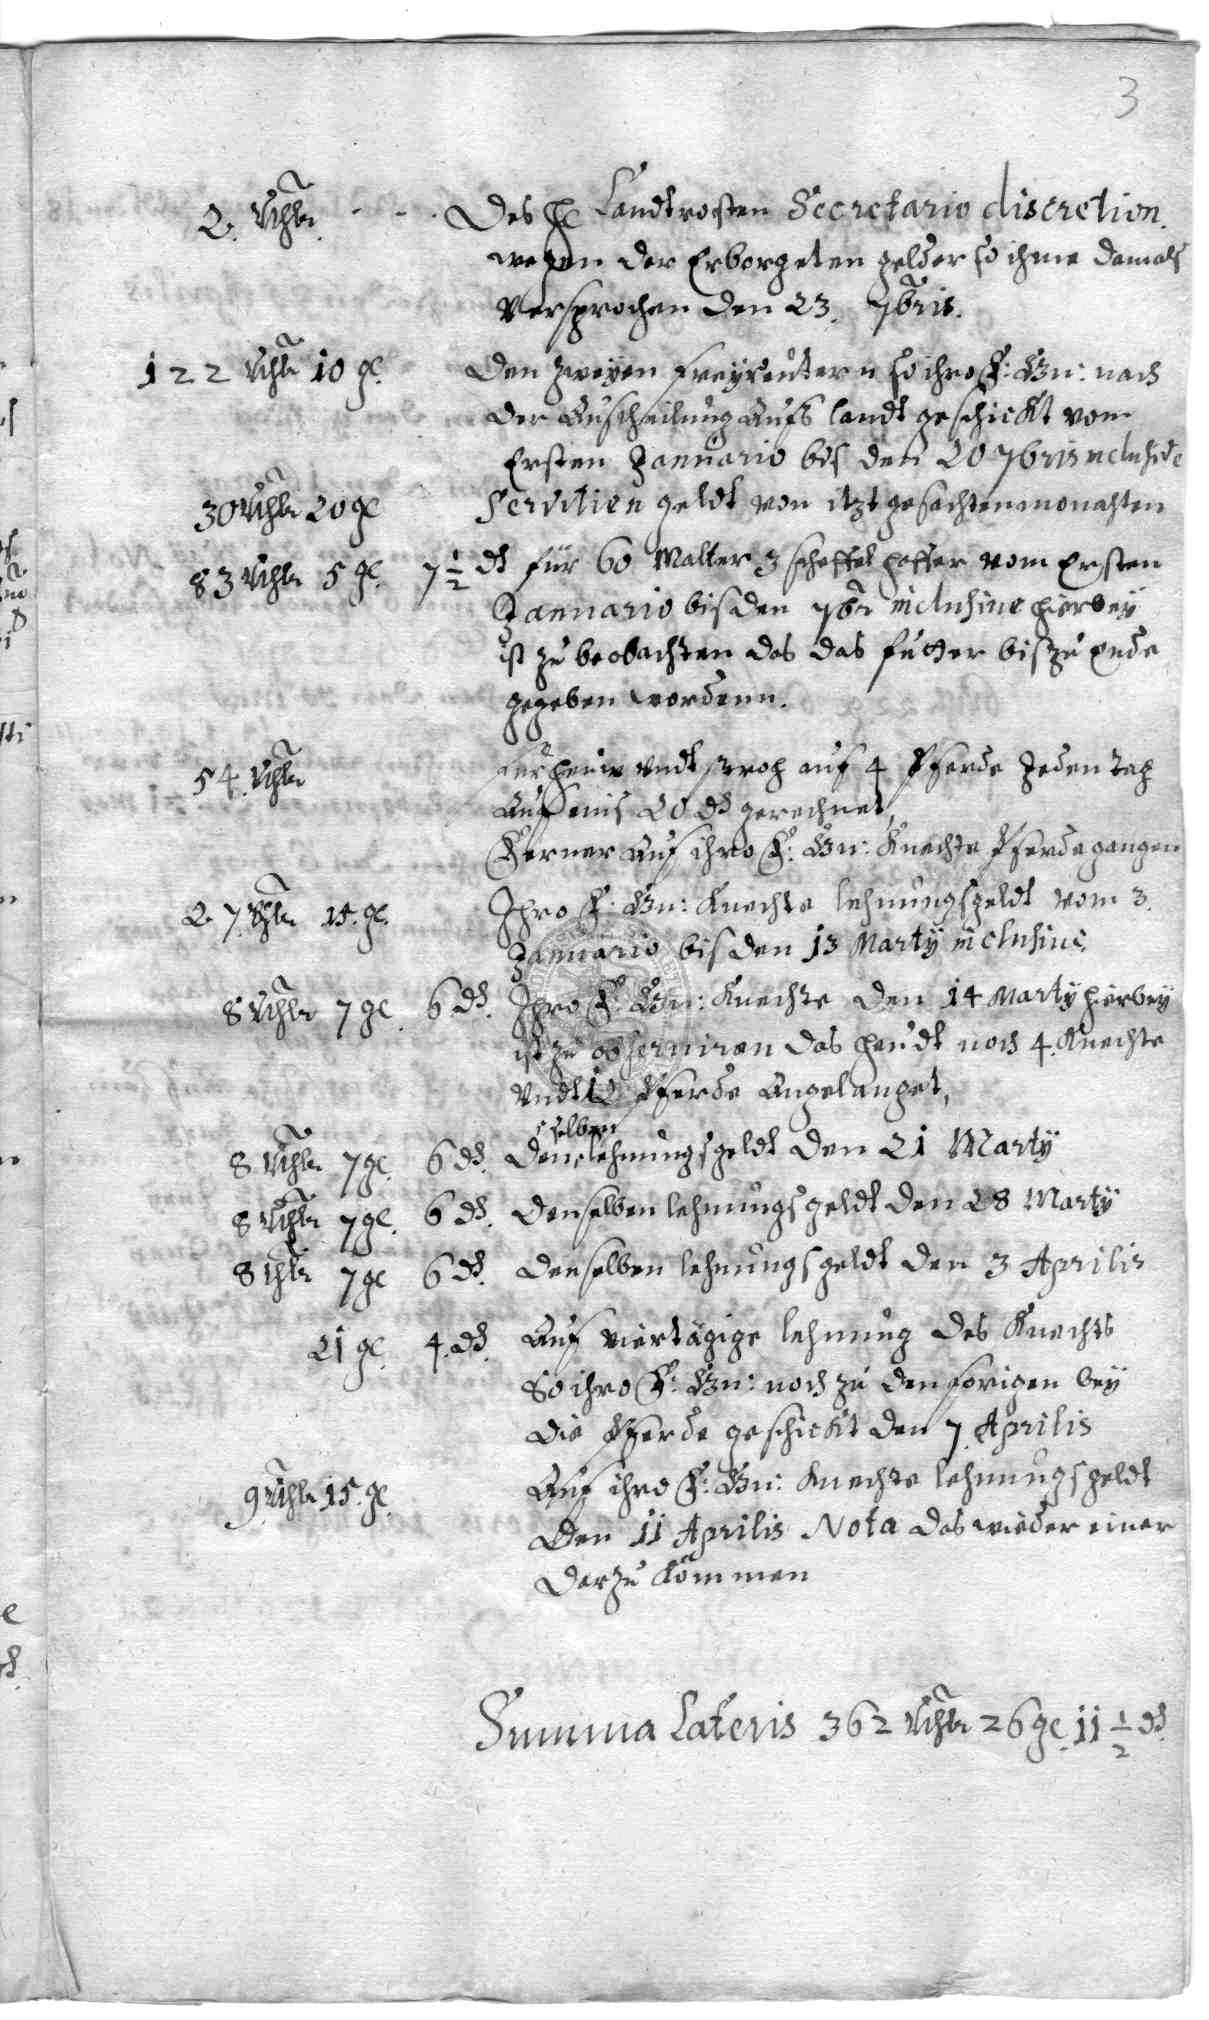 3
2. Rthlr. - - . Des H. Landtrosten Secretario discretion.
wegen der Erborgeten gelder so ihme damals
versprochen den 23. 7bris.
122 Rthlr 10 gl. Den zweyen freyreutern so ihro F: Gn: nach
der Austheilung aufs landt geschickt vom
Ersten Januario bis den 20 7bris inclusive
30 Rthlr 20 gl Servitien geldt von itzt gesachten monahten
83 Rthlr 5 gl. 7 1/2 d für 60 Malter 3 scheffel haffer vom Ersten
Januario bis den 7br inclusive hierbey
ist zu beobachten das das futter bis zu Ende
gegeben wordenn.
54. Rthlr für heuw undt stroh auf 4 Pferde Jeden tag
Auf eins 20 d gerechnet,
Ferner auf ihro F: Gn: Knechte Pferde gangen
27. Rthlr 15. gl. Ihro F: Gn: Knechte lehnungsgeldt vom 3.
Januario bis den 13 Marty inclusive
8 Rthlr 7 gl. 6 d. Ihro F: Gn: Knechte den 14 Marty hierbey
ist zu observiren das heudt noch 4. Knechte
undt 12 Pferde Angelanget,
selben
8 Rthlr 7 gl. 6 d. Den lehnungsgeldt den 21 Marty
8 Rthlr 7 gl. 6 d. Denselben lehnungsgeldt den 28 Marty
8 thlr 7 gl 6 d. Denselben lehnungsgeldt den 3 Aprilis
21 gl. 4. d. Auf viertägige lehnung des Knechts
So ihro F: Gn: noch zu den forigen bey
die Pferde geschickt den 7. Aprilis
9 Rthlr 15. gl. Auf ihro F: Gn: Knechte lehnungsgeldt
Den 11 Aprilis Nota das wieder einer
darzu kommen
Summa Lateris 362 Rthlr 26 gl. 11 1/2 d.